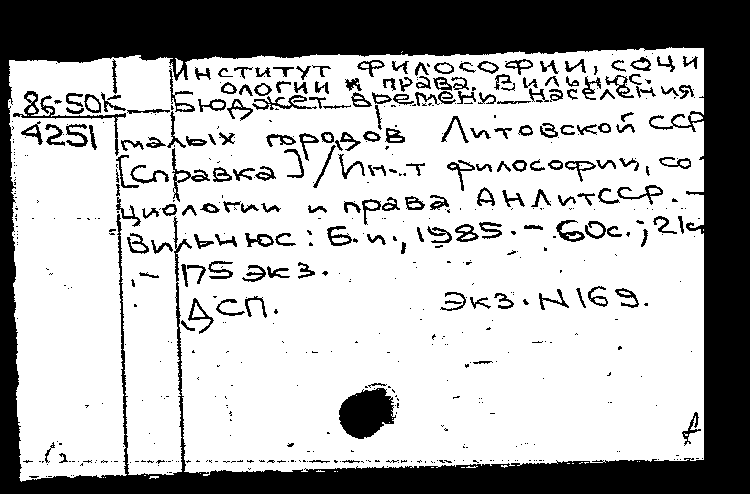 Институт философии, соци
ологии и права. Вильнюс.
86-50К Бюджет времени населения
4251 малых городов Литовской ССР
[Справка] / Ин-т философии, со-
циологии и права АН ЛитССР. –
Вильнюс: Б.и., 1985. – 60с.; 21с
. – 175 экз.
ДСП. Экз. N 169.